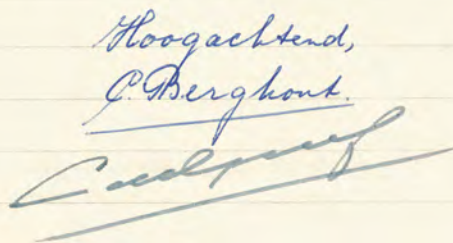 Hoogachtend,
C. Berghout.